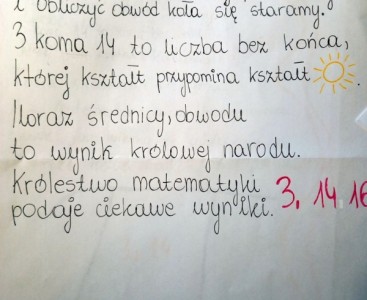 i obliczyć obwód koła się staramy.
3 koma 14 to liczba bez końca,
której kształt przypomina kształt
Iloraz średnicy, obwodu
to wynik królowej narodu.
Królestwo matematyki
podaje ciekawe wyniki. 3, 14 16